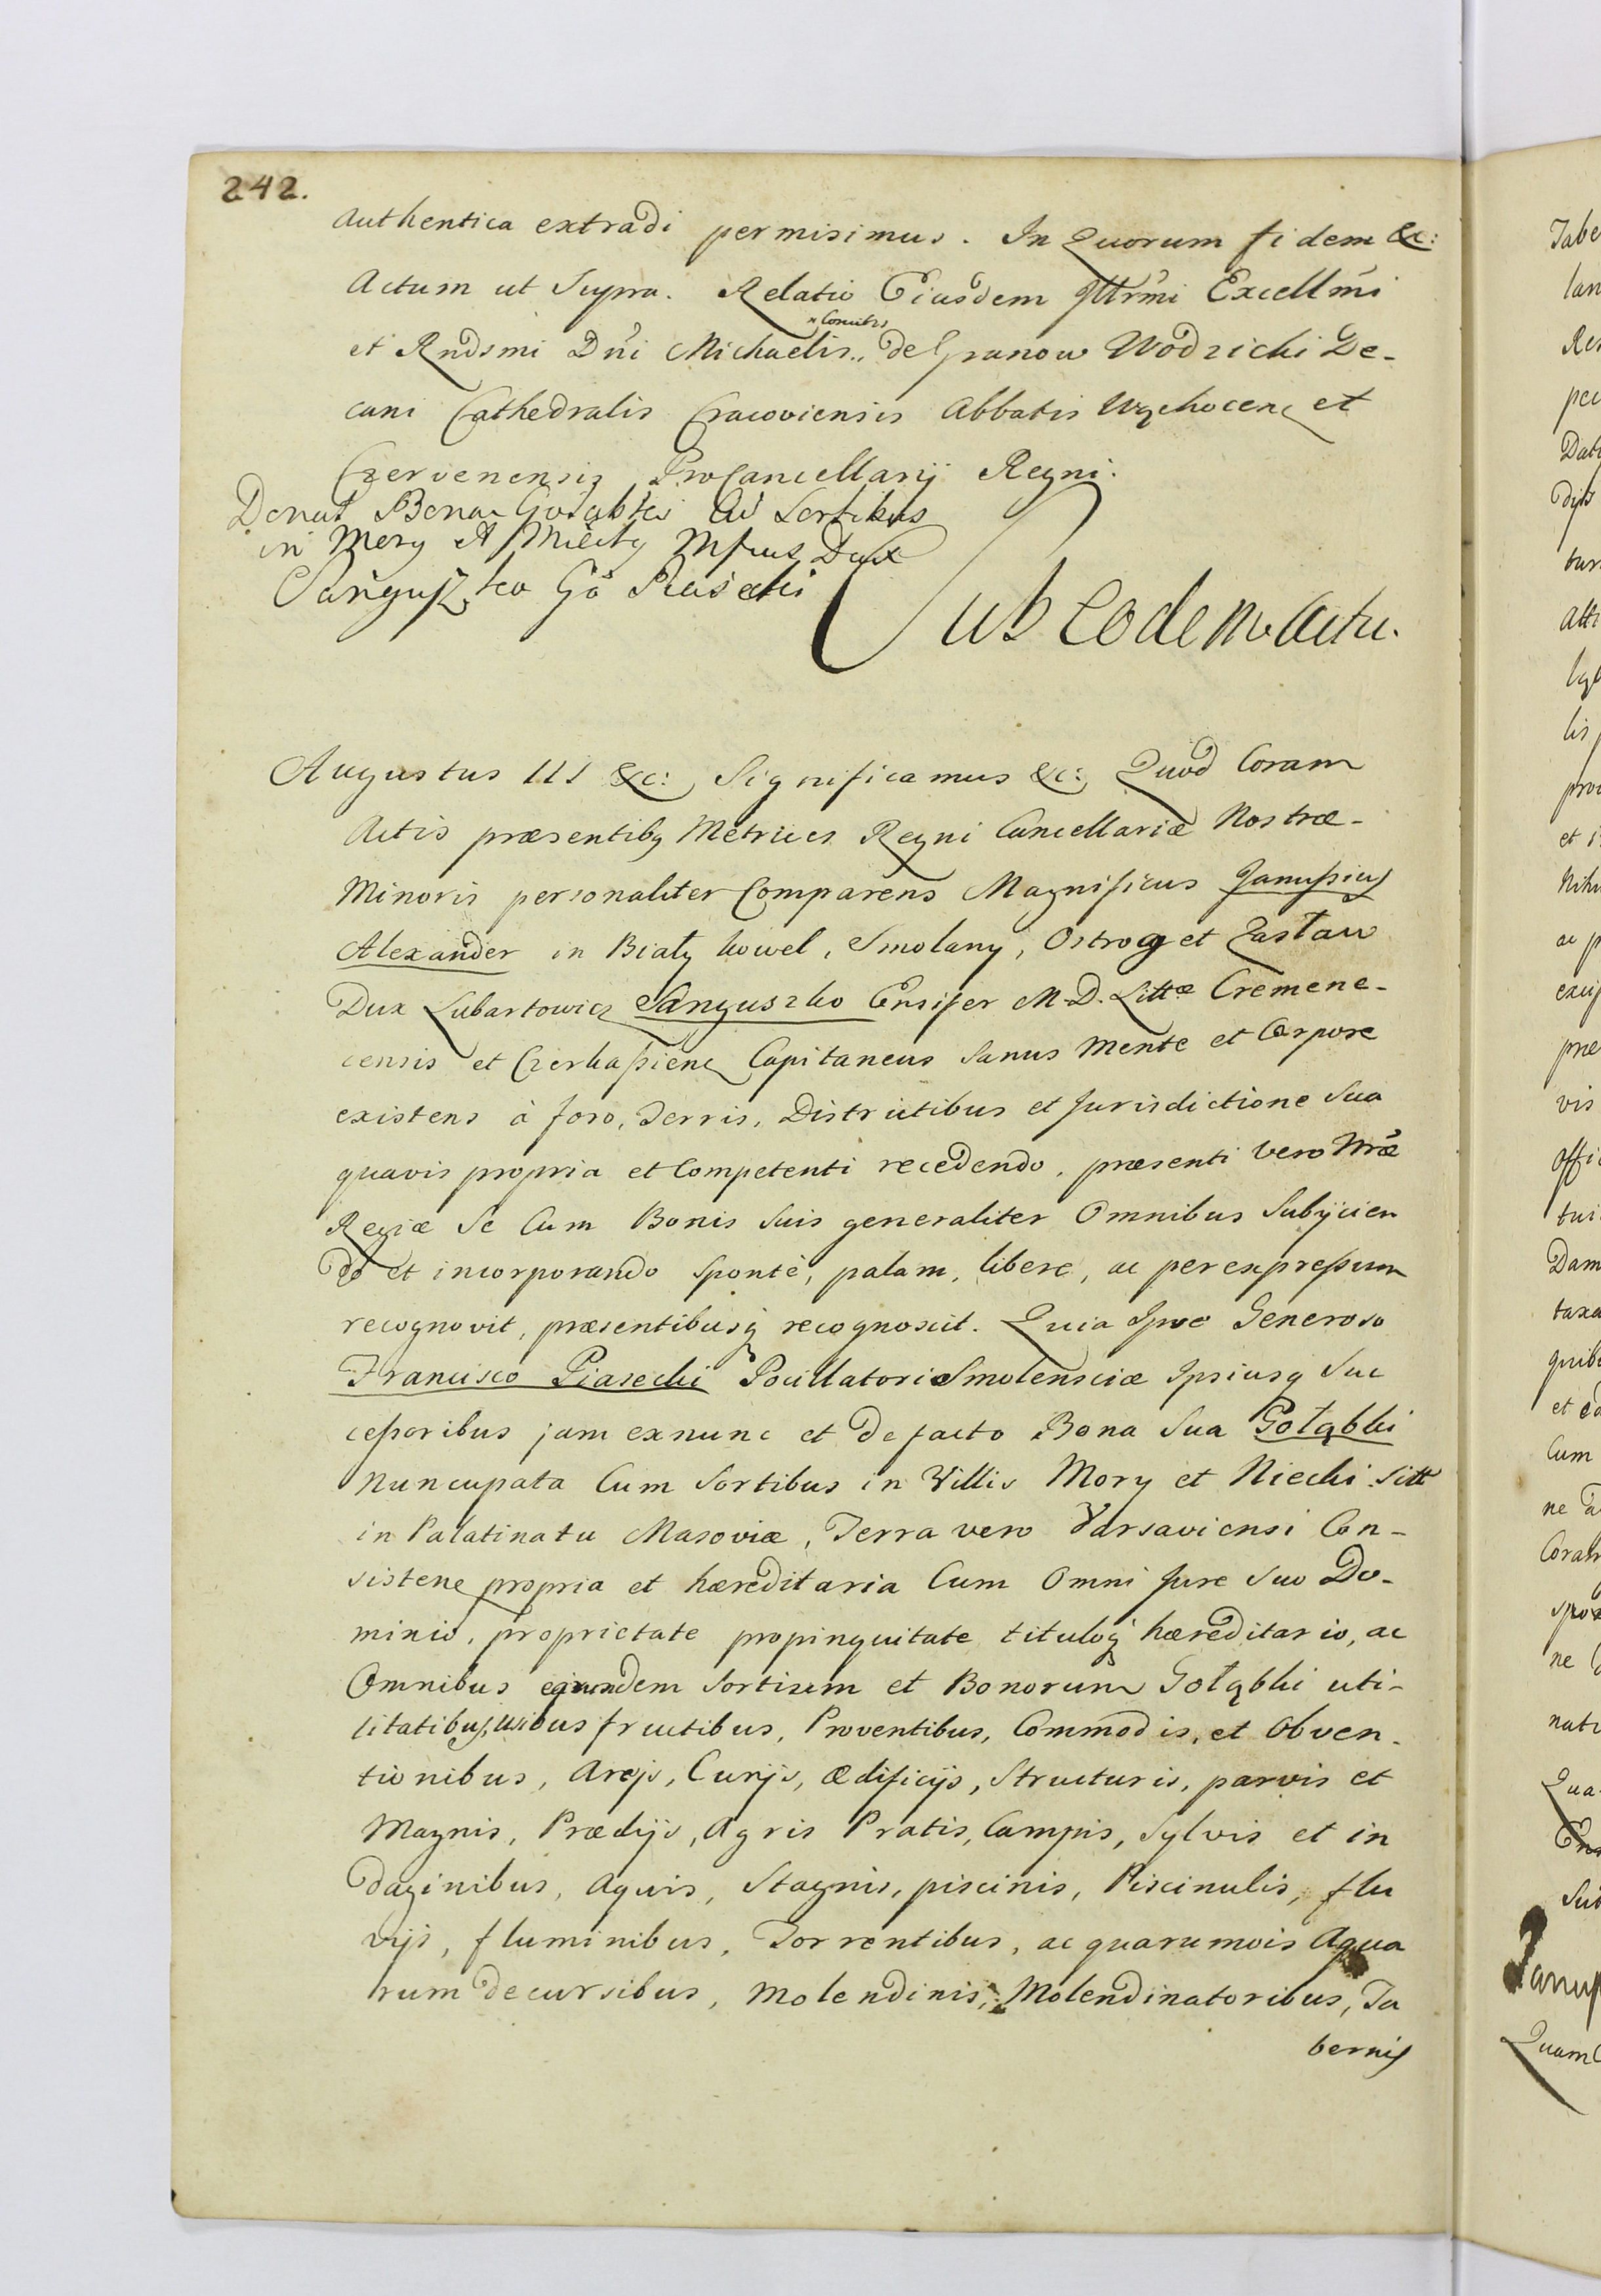 242.
Authentica extradi permisimus. In Quorum fidem &c:
Actum ut Supra. Relatio Eiusdem Illrmi Excellmi
× Comitis
et Rndsmi Dni Michaelis de Granow Wodzicki De-
cani Cathedralis Cracoviensis Abbatis Wąchocen et
Czervenensis ProCancellarij Regni.
Donat Bona Gołąbki Cu Sortibus
in Mory et Mfcus Dux
Sanguszko Go Piasecki
Sub Eodem Actu.
Augustus III &c: Significamus &c: Quod Coram
Actis præsentibq Metrices Regni Cancellariæ Nostræ-
Minoris personaliter Comparens Magnificus Janussius
Alexander in Biały kowel, Smolany, Ostrog et Zasław
Dux Lubartowicz Sanguszko Ensifer M. D. Littæ Cremene-
censis et Czerkassienc Capitaneus Sanus Mente et Corpore
existens à foro, Terris, Districtibus et Jurisdictione Sua
quavis propria et Competenti recedendo, præsenti vero Nræ
Regiæ Se Cum Bonis Suis generaliter Omnibus Subijcien
do et incorporando Sponte, palam, libere, ac per expressum
recognovit, præsentibusq recognoscit. Quia Ipse Generoso
Francisco Piasecki Pocillatori Smolensciæ Ipsiusq Suc
cessoribus jam exnunc et de facto Bona Sua Gołąbki
Nuncupata Cum Sortibus in Villis Mory et Niecki Sitt
in Palatinatu Masoviæ, Terra vero Varsaviensi Con-
sistenc propria et hæreditaria Cum Omni Jure Suo Do-
minio, proprietate propinquitate tituloq hæreditario, ac
Omnibus eorundem Sortium et Bonorum Gołąbki uti-
litatibus, usibus fructibus, Proventibus, Commodis, et Obven-
tionibus, Areis, Curijs, ædificijs, Structuris, parvis et
Magnis, Prædijs, Agris Pratis, Campis, Sylvis et in
daginibus, Aquis, Stagnis, piscinis, Piscinulis, flu
vijs, fluminibus, Torrentibus, ac quarumvis Aqua
rum decursibus, Molendinis, Molendinatoribus, Ta
bernis